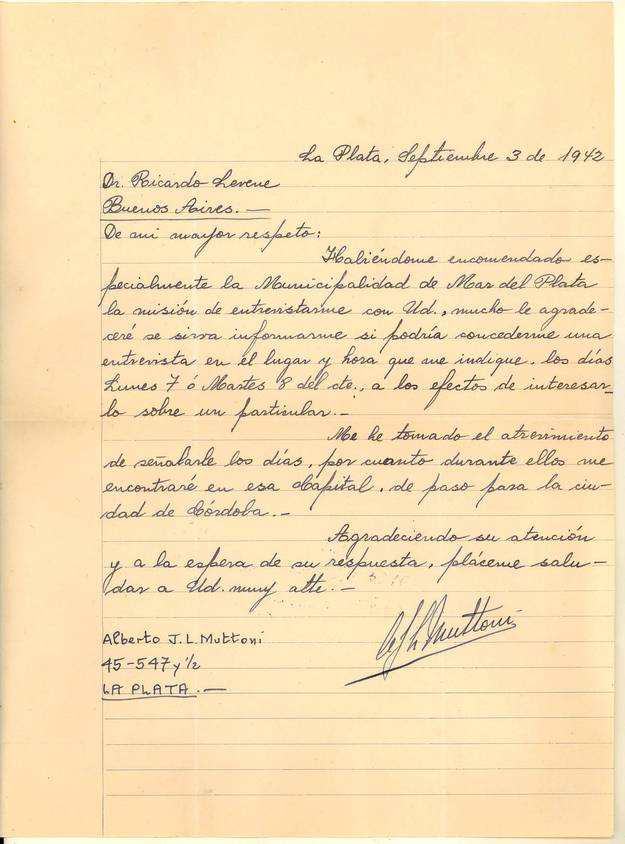 La Plata, Septiembre 3 de 1942
Dr. Ricardo Levene
Buenos Aires. —
De mi mayor respeto:
Habiéndome encomendado es-
pecialmente la Municipalidad de Mar del Plata
la misión de entrevistarme con Ud., mucho le agrade-
ceré se sirva informarme si podría concederme una
entrevista en el lugar y hora que me indique, los días
Lunes 7 ó Martes 8 del cte., a los efectos de interesar-
lo sobre un particular. —
Me he tomado el atrevimiento
de señalarle los días, por cuanto durante ellos me
encontraré en esa Cápital, de paso para la ciu-
dad de Córdoba. —
Agradeciendo su atención
y a la espera de su respuesta, pláceme salu-
dar a Ud. muy atte. —
AJLMuttoni
Alberto J. L. Muttoni
45-547 y 1/2
LA PLATA. —